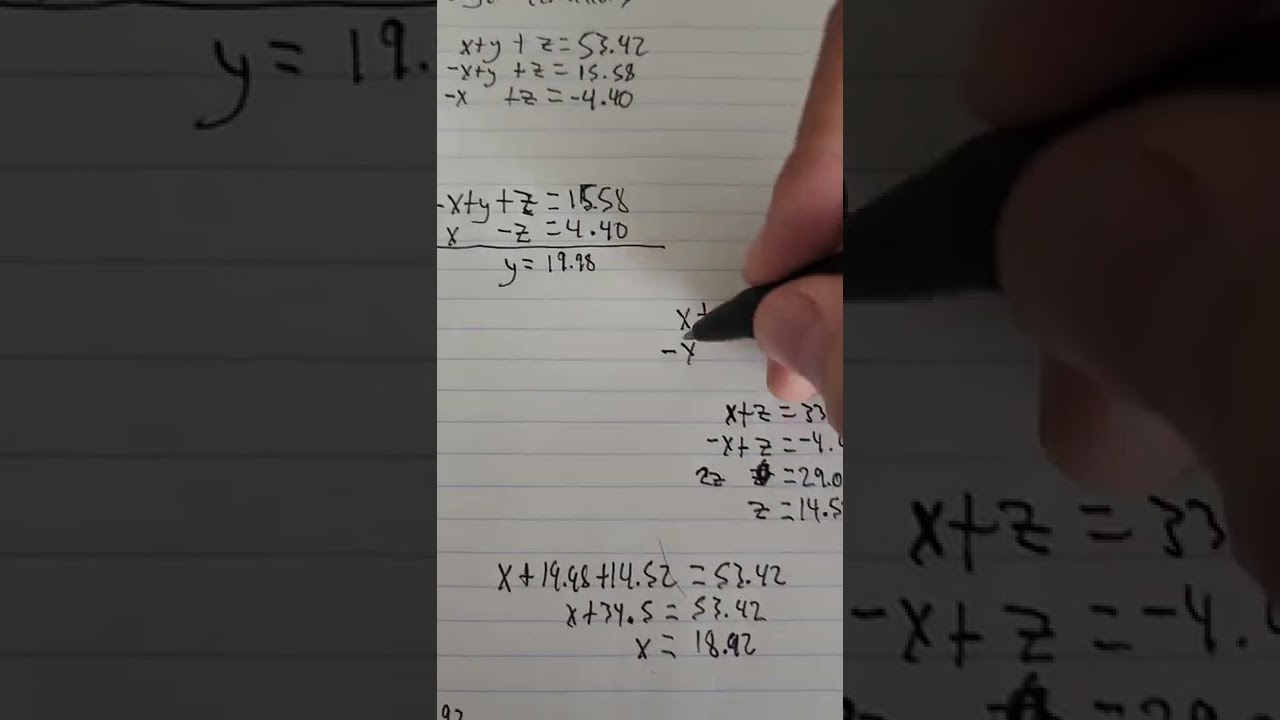 x+y+z=53.42
-x+y+z=15.58
-x +z=-4.40
-x+y+z=15.58
x -z=4.40
y=19.98
x+
-x
x+z=33
-x+z=-4.4
2z =29.0
z=14.5
x+19.98+14.52=53.42
x+34.5=53.42
x=18.92
92
y=19.
x+z=33
-x+z=-4.4